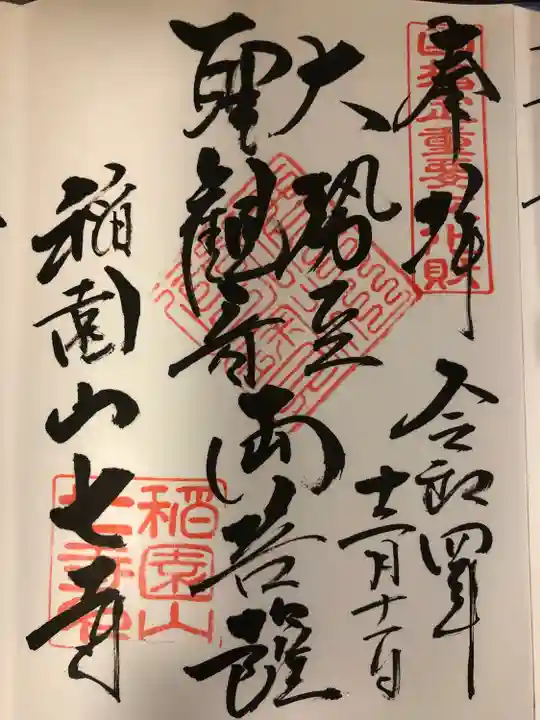 奉拝
令和四年
十二月十一日
大勢至
聖観音
両菩薩
稲園山七寺
重要文化財
稲園山
七寺